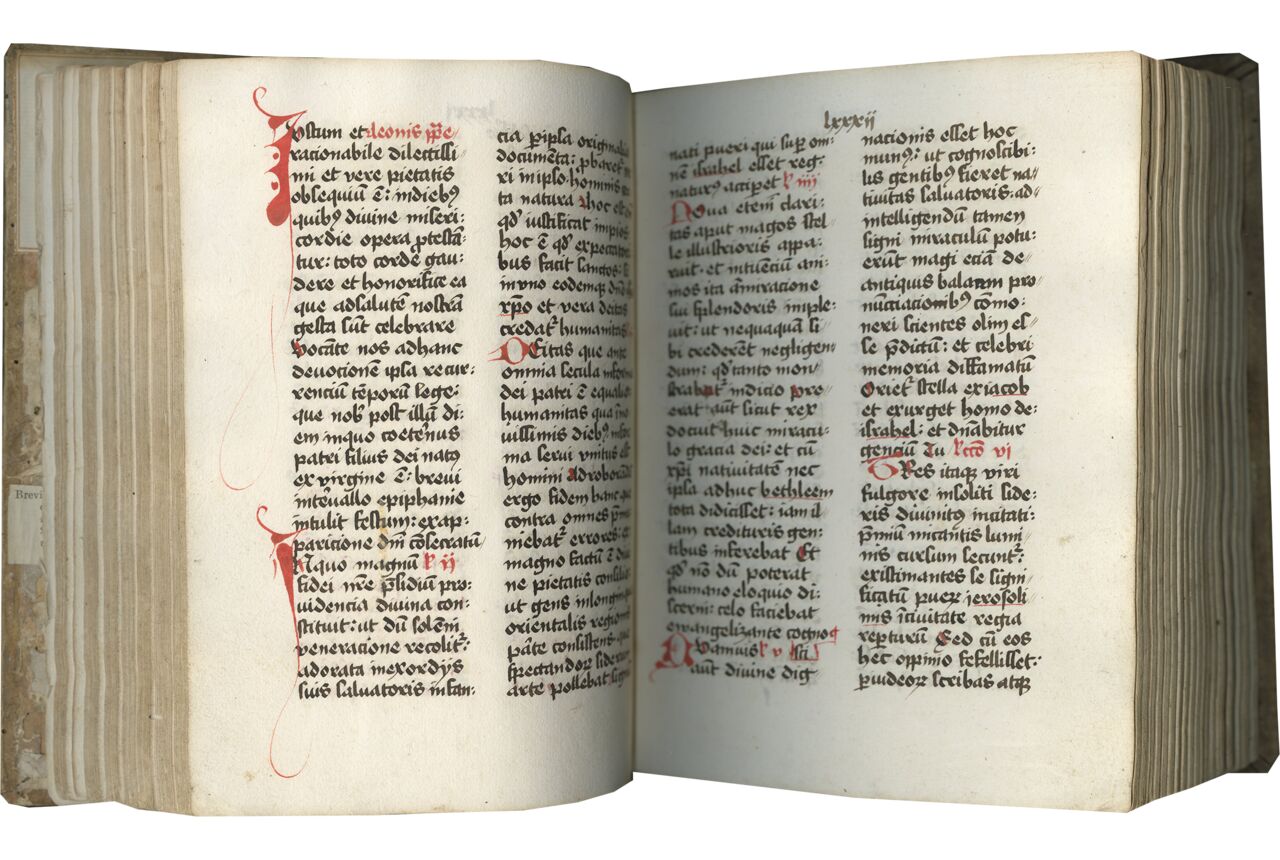 Iustum et leonis ppe
racionabile dilectissi
mi et vere pietatis
obsequiū ē: indiebꝰ
quibꝰ divine miseri:
cordie opera ꝓtestā
tur: toto corde gau:
dere et honorifice ea
que adsalutē nostrā
gesta sūt celebrare
vocāte nos adhanc
devocionem ipsa recur:
renciū tēporū lege:
que nobꝭ post illū di:
em inquo coeternus
patri filius dei natꝰ
ex virgine ē: brevi
intervallo epiphanie
intulit festum: exap
paricione dnī cōsecratū
In quo magnū l ii
fidei nrē p̄sidiū pro:
videncia divina con:
stituit: ut dū solēni
veneracione recolitr:
adorata inexordijs
suis salvatoris infan:
cia ꝑ ipsa originalia
documēta: ꝓbaretr
ri inipso hominis
ta natura hoc est
qd iustificat impios
hoc ē qd ex peccatoribus
bus facit sanctos:
inuno eodemqꝫ
xpō et vera deitas
credatr humanitas
Deitas que ante
omnia secula
dei patri ē equalis
humanitas qua
vissimis diebꝰ
ma servi unitus est
homini Ad roborandā
ergo fidem hanc que
contra omnes
niebatr errores:
magno factū ē
ne pietatis consilio
ut gens inlonginqua
orientalis regionis
parte consistens que
spectandorꝫ siderum
arte pollebat
lxxxij
nati pueri qui suꝑ om
nē israhel esset reg
naturꝰ acciperet l iiii
Nova etenī clari:
tas aput magos stel
le illustrioris appa:
ruit et intuenciū ani
mos ita āmiracione
sui splendoris imple:
vit: ut nequaquā si
bi crederent negligen
dum: qd tanto mon
strabatr indicio Pro
erat aut sicut rex
docuit huic miracu:
lo gracia dei: et cū
xpi nativitatē nec
ipsa adhuc bethleem
tota didicisset: iam il
lam credituris gen:
tibus inferebat Et
qd nō dū poterat
humano eloquio di:
scerni: celo faciebat
ewangelizante cogno
Quāvis l v sci
aut divine dig
nacionis esset hoc
munꝰ: ut cognoscibi:
lis gentibꝰ fieret na
tivitas salvatoris: ad
intelligendū tamen
signi miraculū potu:
erūt magi eciā de
antiquis balaam pro
nūciacionibꝰ cōmo:
neri scientes olim es
se p̄dictū: et celebri
memoria diffamatū
Orietr stella exiacob
et exurget homo de:
israhel: et dnābitur
genciū Tu lcō vi
Tres itaqꝫ viri
fulgore insoliti side:
ris divinitꝰ incitati:
p̄viū micantis lumi
nis cursum secuntr:
existimantes se signi
ficatū puerꝫ jerosoli
mis ī civitate regia
repturū Sed cū eos
hec oppinio fefellisset:
ꝑ iudeorꝫ scribas atqꝫ